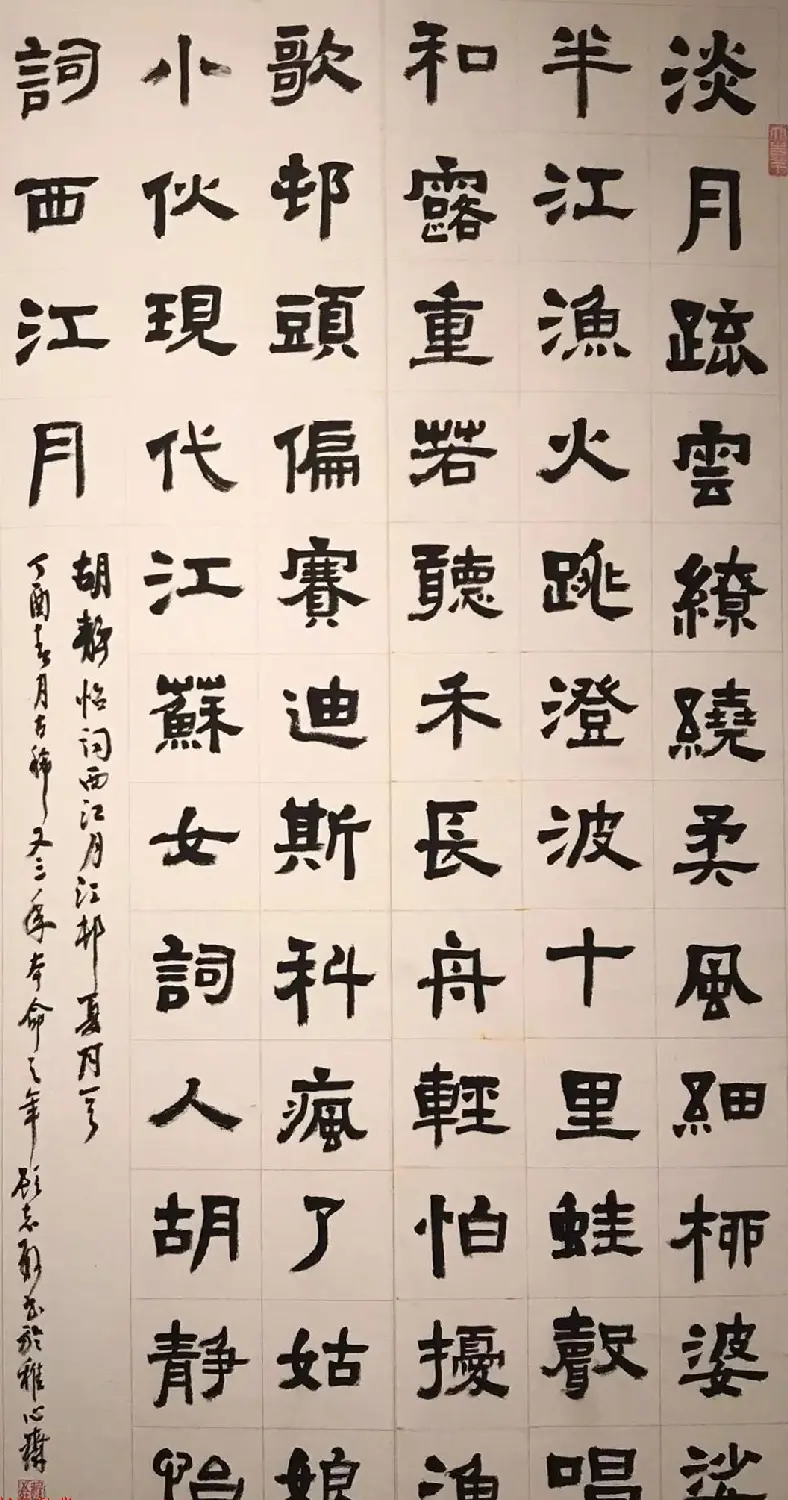 淡月疏雲繚繞柔風細柳婆娑
半江漁火跳澄波十里蛙聲唱
和露重若聽禾長舟輕怕擾漁
歌邨頭偏賽迪斯科瘋了姑娘
小伙現代江蘇女詞人胡靜怡
詞西江月
胡靜怡詞西江月江邨夏夜
丁酉春月古稀又三年本命之年顧志新書於雅心齋